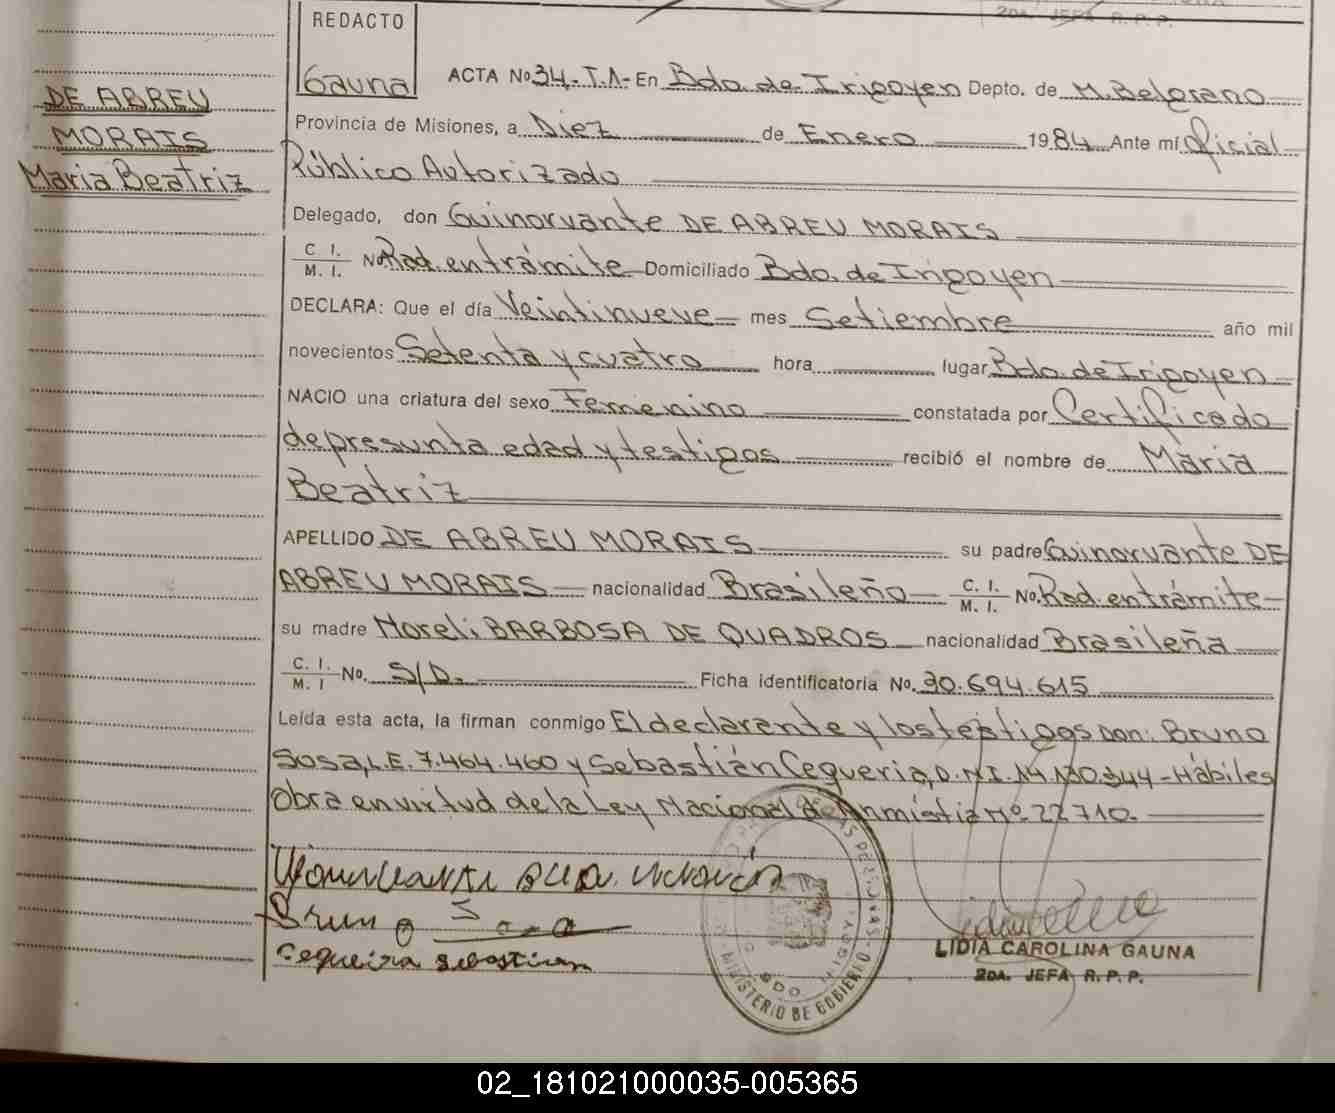 2DA. JEFA R.P.P.
REDACTO
Gauna
DE ABREU
MORAIS
Maria Beatriz
ACTA No 34-T.A- En Bdo. de Irigoyen Depto. de M. Belgrano
Provincia de Misiones, a Diez de Enero 1984 Ante mí Oficial
Público Autorizado
Delegado, don Guinorvante DE ABREU MORAIS
C. I. / M. I. No Rad. en trámite Domiciliado Bdo. de Irigoyen
DECLARA: Que el día Veintinueve mes Setiembre año mil
novecientos Setenta y cuatro hora lugar Bdo. de Irigoyen
NACIO una criatura del sexo Femenino constatada por Certificado
de presunta edad y testigos recibió el nombre de Maria
Beatriz
APELLIDO DE ABREU MORAIS su padre Guinorvante DE
ABREU MORAIS nacionalidad Brasileño C. I. / M. I. No. Rad. en trámite
su madre Noreli BARBOSA DE QUADROS nacionalidad Brasileña
C. I. / M. I No. S/D. Ficha identificatoria No. 30.694.615
Leída esta acta, la firman conmigo El declarante y los testigos Don: Bruno
Sosa, L.E. 7.464.460 y Sebastián Cequeria, D.N.I. 14.130.344 - Hábiles
Obra en virtud de la Ley Nacional de Anmistia nº 22710.
Bruno Sosa
Cequeira Sebastian
MINISTERIO DE GOBIERNO
LIDIA CAROLINA GAUNA
2DA. JEFA R. P. P.
02_181021000035-005365